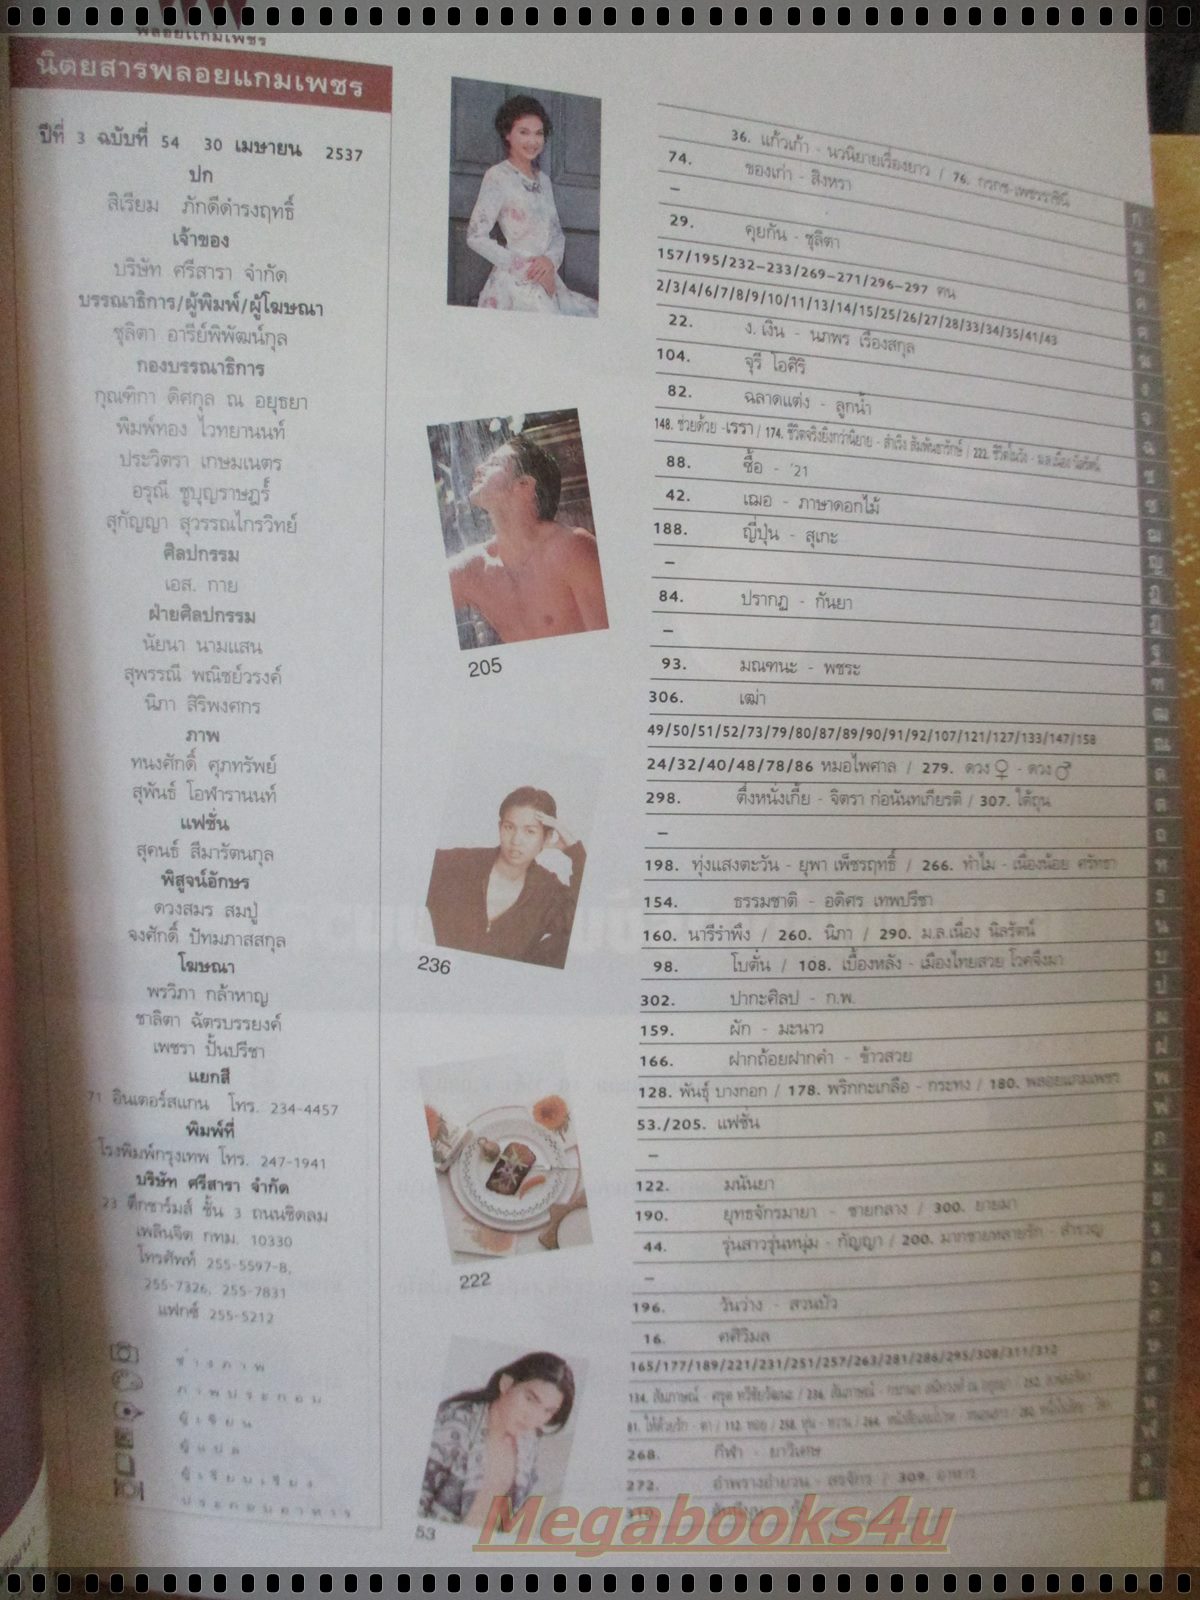 พลอยแกมเพชร
นิตยสารพลอยแกมเพชร
ปีที่ 3 ฉบับที่ 54 30 เมษายน 2537
ปก
สิเรียม ภักดีดำรงฤทธิ์
เจ้าของ
บริษัท ศรีสารา จำกัด
บรรณาธิการ/ผู้พิมพ์/ผู้โฆษณา
ชุลิตา อารีย์พิพัฒน์กุล
กองบรรณาธิการ
กุณฑิกา ดิศกุล ณ อยุธยา
พิมพ์ทอง ไวทยานนท์
ประวิตรา เกษมเนตร
อรุณี ชูบุญราษฎร์
สุกัญญา สุวรรณไกรวิทย์
ศิลปกรรม
เอส. กาย
ฝ่ายศิลปกรรม
นัยนา นามแสน
สุพรรณี พณิชย์วรงค์
นิภา สิริพงศกร
ภาพ
ทนงศักดิ์ ศุภทรัพย์
สุพันธ์ โอฬารานนท์
แฟชั่น
สุคนธ์ สีมารัตนกุล
พิสูจน์อักษร
ดวงสมร สมปู่
จงศักดิ์ ปัทมภาสสกุล
โฆษณา
พรวิภา กล้าหาญ
ชาลิตา ฉัตรบรรยงค์
เพชรา ปั้นปรีชา
แยกสี
71 อินเตอร์สแกน โทร. 234-4457
พิมพ์ที่
โรงพิมพ์กรุงเทพ โทร. 247-1941
บริษัท ศรีสารา จำกัด
23 ตึกชาร์มส์ ชั้น 3 ถนนชิดลม
เพลินจิต กทม. 10330
โทรศัพท์ 255-5597-8,
255-7326, 255-7831
แฟกซ์ 255-5212
ช่างภาพ
ภาพประกอบ
ผู้เขียน
ผู้แปล
ผู้เรียบเรียง
ประกอบอาหาร
205
236
222
53
36. แก้วเก้า - นวนิยายเรื่องยาว / 76. กรกช-เพชรราชินี
74. ของเก่า - สิงหรา
–
29. คุยกัน - ชุลิตา
157/195/232–233/269–271/296–297 ฅน
2/3/4/6/7/8/9/10/11/13/14/15/25/26/27/28/33/34/35/41/43
22. ง. เงิน - นภพร เรืองสกุล
104. จุรี โอศิริ
82. ฉลาดแต่ง - ลูกน้ำ
148. ช่วยด้วย -เรรา / 174. ชีวิตจริงยิ่งกว่านิยาย - สำเริง สัมพันธารักษ์ / 222. ชีวิตในวัง - ม.ล.เนื่อง นิลรัตน์
88. ซื้อ - '21
42. เฌอ - ภาษาดอกไม้
188. ญี่ปุ่น - สุเกะ
–
84. ปรากฏ - กันยา
–
93. มณฑนะ - พชระ
306. เฒ่า
49/50/51/52/73/79/80/87/89/90/91/92/107/121/127/133/147/158
24/32/40/48/78/86 หมอไพศาล / 279. ดวง♀ - ดวง♂
298. ตึ่งหนั่งเกี้ย - จิตรา ก่อนันทเกียรติ / 307. ใต้ถุน
–
198. ทุ่งแสงตะวัน - ยุพา เพ็ชรฤทธิ์ / 266. ทำไม - เนื่องน้อย ศรัทธา
154. ธรรมชาติ - อดิศร เทพปรีชา
160. นารีรำพึง / 260. นิภา / 290. ม.ล.เนื่อง นิลรัตน์
98. โบตั๋น / 108. เบื้องหลัง - เมืองไทยสวย โวคจึงมา
302. ปากะศิลป - ก.พ.
159. ผัก - มะนาว
166. ฝากถ้อยฝากคำ - ข้าวสวย
128. พันธุ์ บางกอก / 178. พริกกะเกลือ - กระทง / 180. พลอยแกมเพชร
53./205. แฟชั่น
–
122. มนันยา
190. ยุทธจักรมายา - ชายกลาง / 300. ยายมา
44. รุ่นสาวรุ่นหนุ่ม - กัญญา / 200. มากชายหลายรัก - สำรวญ
–
196. วันว่าง - สวนบัว
16. ศศิวิมล
165/177/189/221/231/251/257/263/281/286/295/308/311/312
134. สัมภาษณ์ - ศรุต / 236. สัมภาษณ์
268. กีฬา - ยาวิเศษ
272. อำพรางอำยวน - สรจักร / 309. อาหาร
Megabooks4u